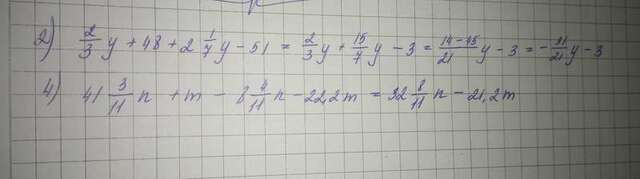 2) 2/3 y + 48 + 2 1/7 y - 51 = 2/3 y + 15/7 y - 3 = 14-45/21 y - 3 = - 31/21 y - 3
4) 41 3/11 n + m - 8 4/11 n - 22,2m = 32 8/11 n - 21,2m